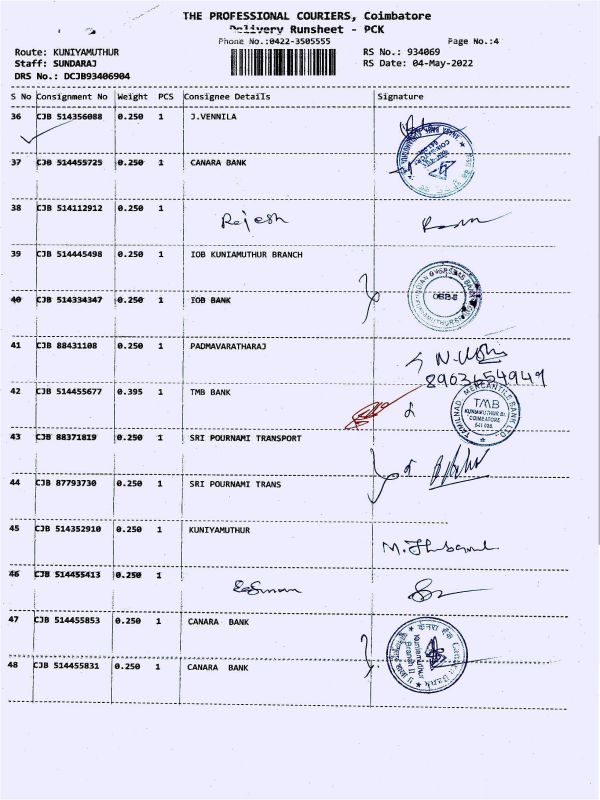 THE PROFESSIONAL COURIERS, Coimbatore
Delivery Runsheet - PCK
Phone No.:0422-3505555 Page No.:4
Route: KUNIYAMUTHUR RS No.: 934069
Staff: SUNDARAJ RS Date: 04-May-2022
DRS No.: DCJB93406904
S No Consignment No Weight PCS Consignee Details Signature
36 CJB 514356088 0.250 1 J.VENNILA
37 CJB 514455725 0.250 1 CANARA BANK
38 CJB 514112912 0.250 1 Rajesh
39 CJB 514445498 0.250 1 IOB KUNIAMUTHUR BRANCH
40 CJB 514334347 0.250 1 IOB BANK
INDIAN OVERSEAS BANK
41 CJB 88431108 0.250 1 PADMAVARATHARAJ
8903654949
42 CJB 514455677 0.395 1 TMB BANK
TAMILNAD MERCANTILE BANK LTD.
TMB
KUNIAMUTHUR BR.
COIMBATORE
43 CJB 88371819 0.250 1 SRI POURNAMI TRANSPORT
44 CJB 87793730 0.250 1 SRI POURNAMI TRANS
45 CJB 514352910 0.250 1 KUNIYAMUTHUR
46 CJB 514455413 0.250 1
47 CJB 514455853 0.250 1 CANARA BANK
48 CJB 514455831 0.250 1 CANARA BANK
केनरा बैंक Canara Bank
Kuniamuthur
Branch II